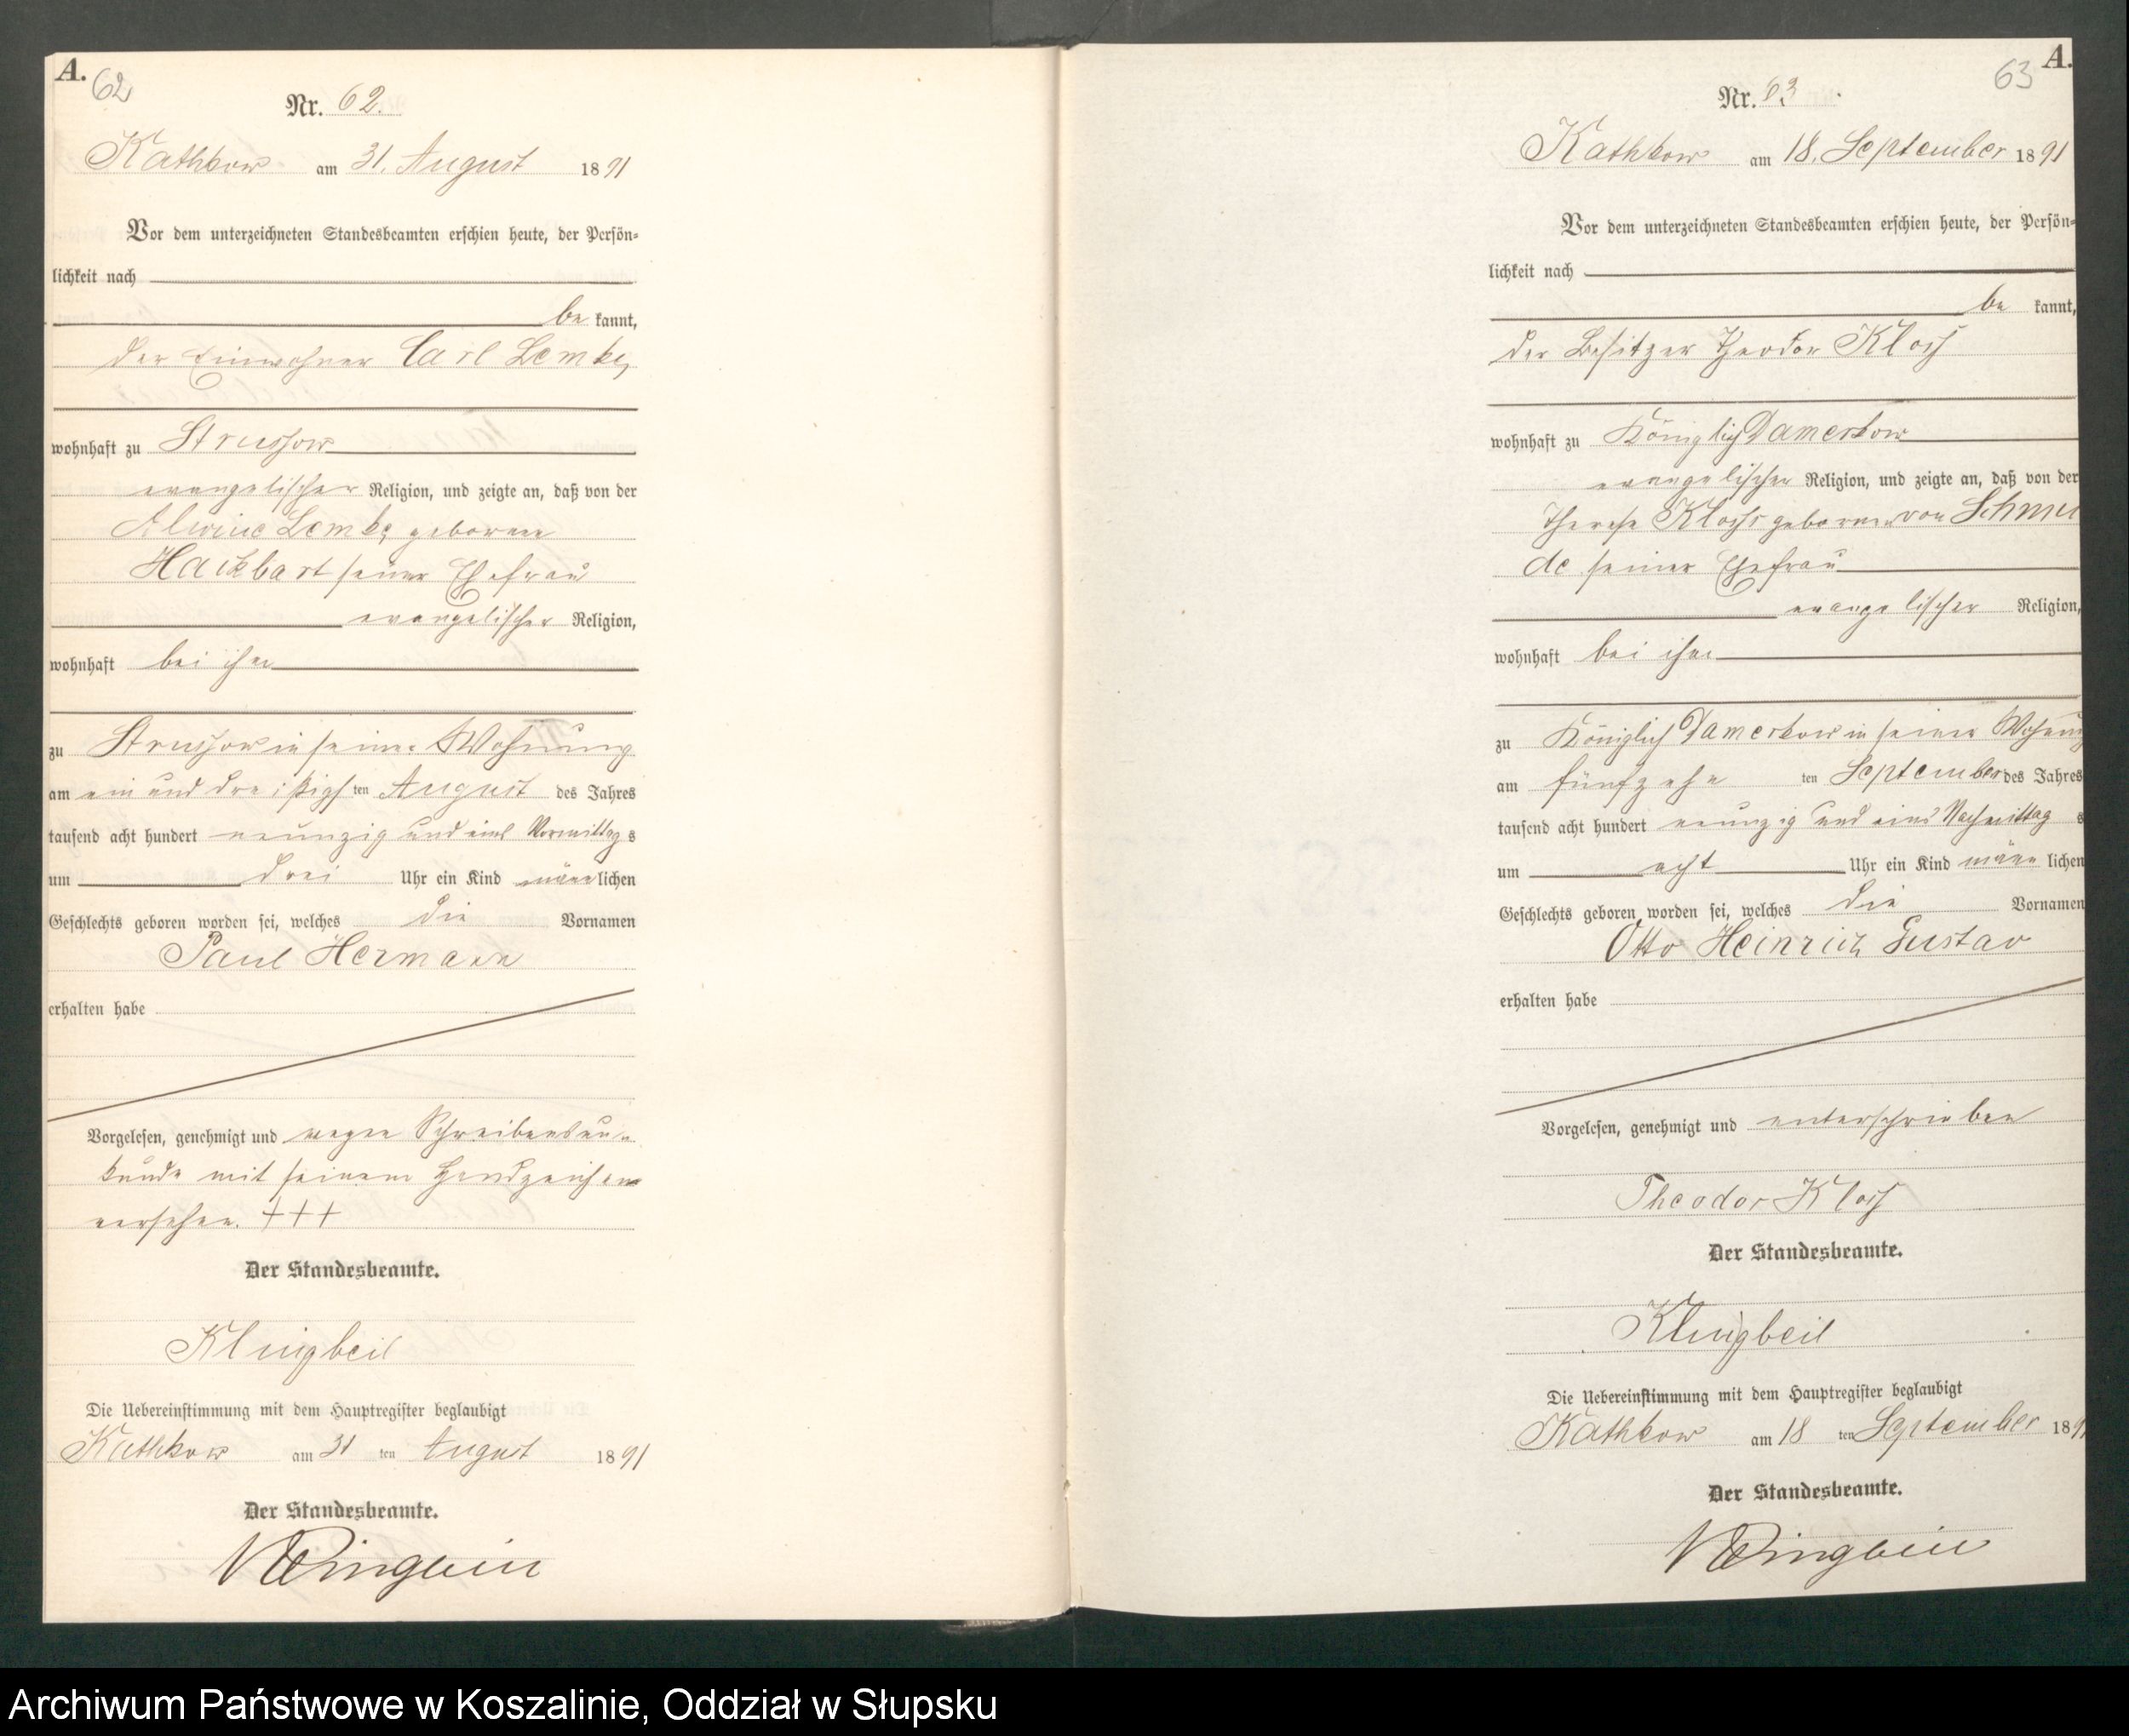 A.
62
Nr. 62.
Kathkow am 31. August 1891
Vor dem unterzeichneten Standesbeamten erschien heute, der Persön-
lichkeit nach
be kannt,
der Einwohner Carl Lemke,
wohnhaft zu Strussow
evangelischer Religion, und zeigte an, daß von der
Alwine Lemke geborene
Hackbart seiner Ehefrau
evangelischer Religion,
wohnhaft bei ihm
zu Strussow in seiner Wohnung
am ein und dreißigsten August des Jahres
tausend acht hundert neunzig und eins Vormittags
um drei Uhr ein Kind männlichen
Geschlechts geboren worden sei, welches die Vornamen
Paul Hermann
erhalten habe
Vorgelesen, genehmigt und wegen Schreibensun-
kunde mit seinem Handzeichen
versehen. +++
Der Standesbeamte.
Klingbeil
Die Uebereinstimmung mit dem Hauptregister beglaubigt
Kathkow am 31 ten August 1891
Der Standesbeamte.
Klingbeil
A.
63
Nr. 63
Kathkow am 18. September 1891
Vor dem unterzeichneten Standesbeamten erschien heute, der Persön-
lichkeit nach
be kannt,
der Besitzer Theodor Kloss
wohnhaft zu Königlich Damerkow
evangelischer Religion, und zeigte an, daß von der
Therese Kloss geborenen von Schmu
de seiner Ehefrau
evangelischer Religion,
wohnhaft bei ihm
zu Königlich Damerkow in seiner Wohnung
am fünfzehn ten September des Jahres
tausend acht hundert neunzig und eins Nachmittag s
um acht Uhr ein Kind männlichen
Geschlechts geboren worden sei, welches die Vornamen
Otto Heinrich Gustav
erhalten habe
Vorgelesen, genehmigt und unterschrieben
Theodor Kloss
Der Standesbeamte.
Klingbeil
Die Uebereinstimmung mit dem Hauptregister beglaubigt
Kathkow am 18 ten September 1891
Der Standesbeamte.
Klingbeil
Archiwum Państwowe w Koszalinie, Oddział w Słupsku